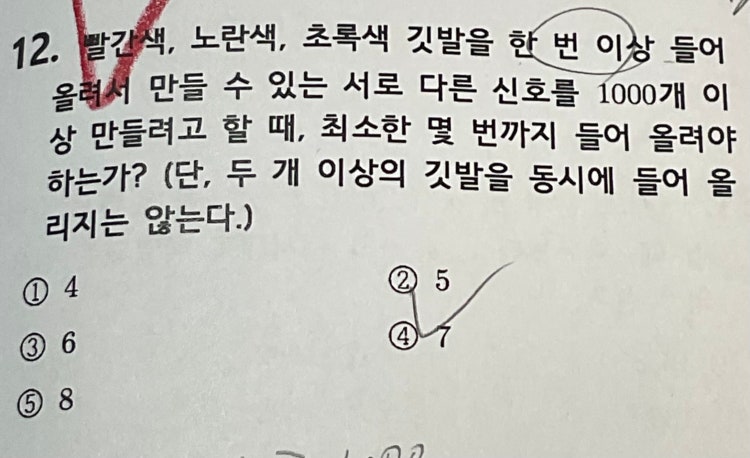 12. 빨간색, 노란색, 초록색 깃발을 한 번 이상 들어
올려서 만들 수 있는 서로 다른 신호를 1000개 이
상 만들려고 할 때, 최소한 몇 번까지 들어 올려야
하는가? (단, 두 개 이상의 깃발을 동시에 들어 올
리지는 않는다.)
① 4 ② 5
③ 6 ④ 7
⑤ 8